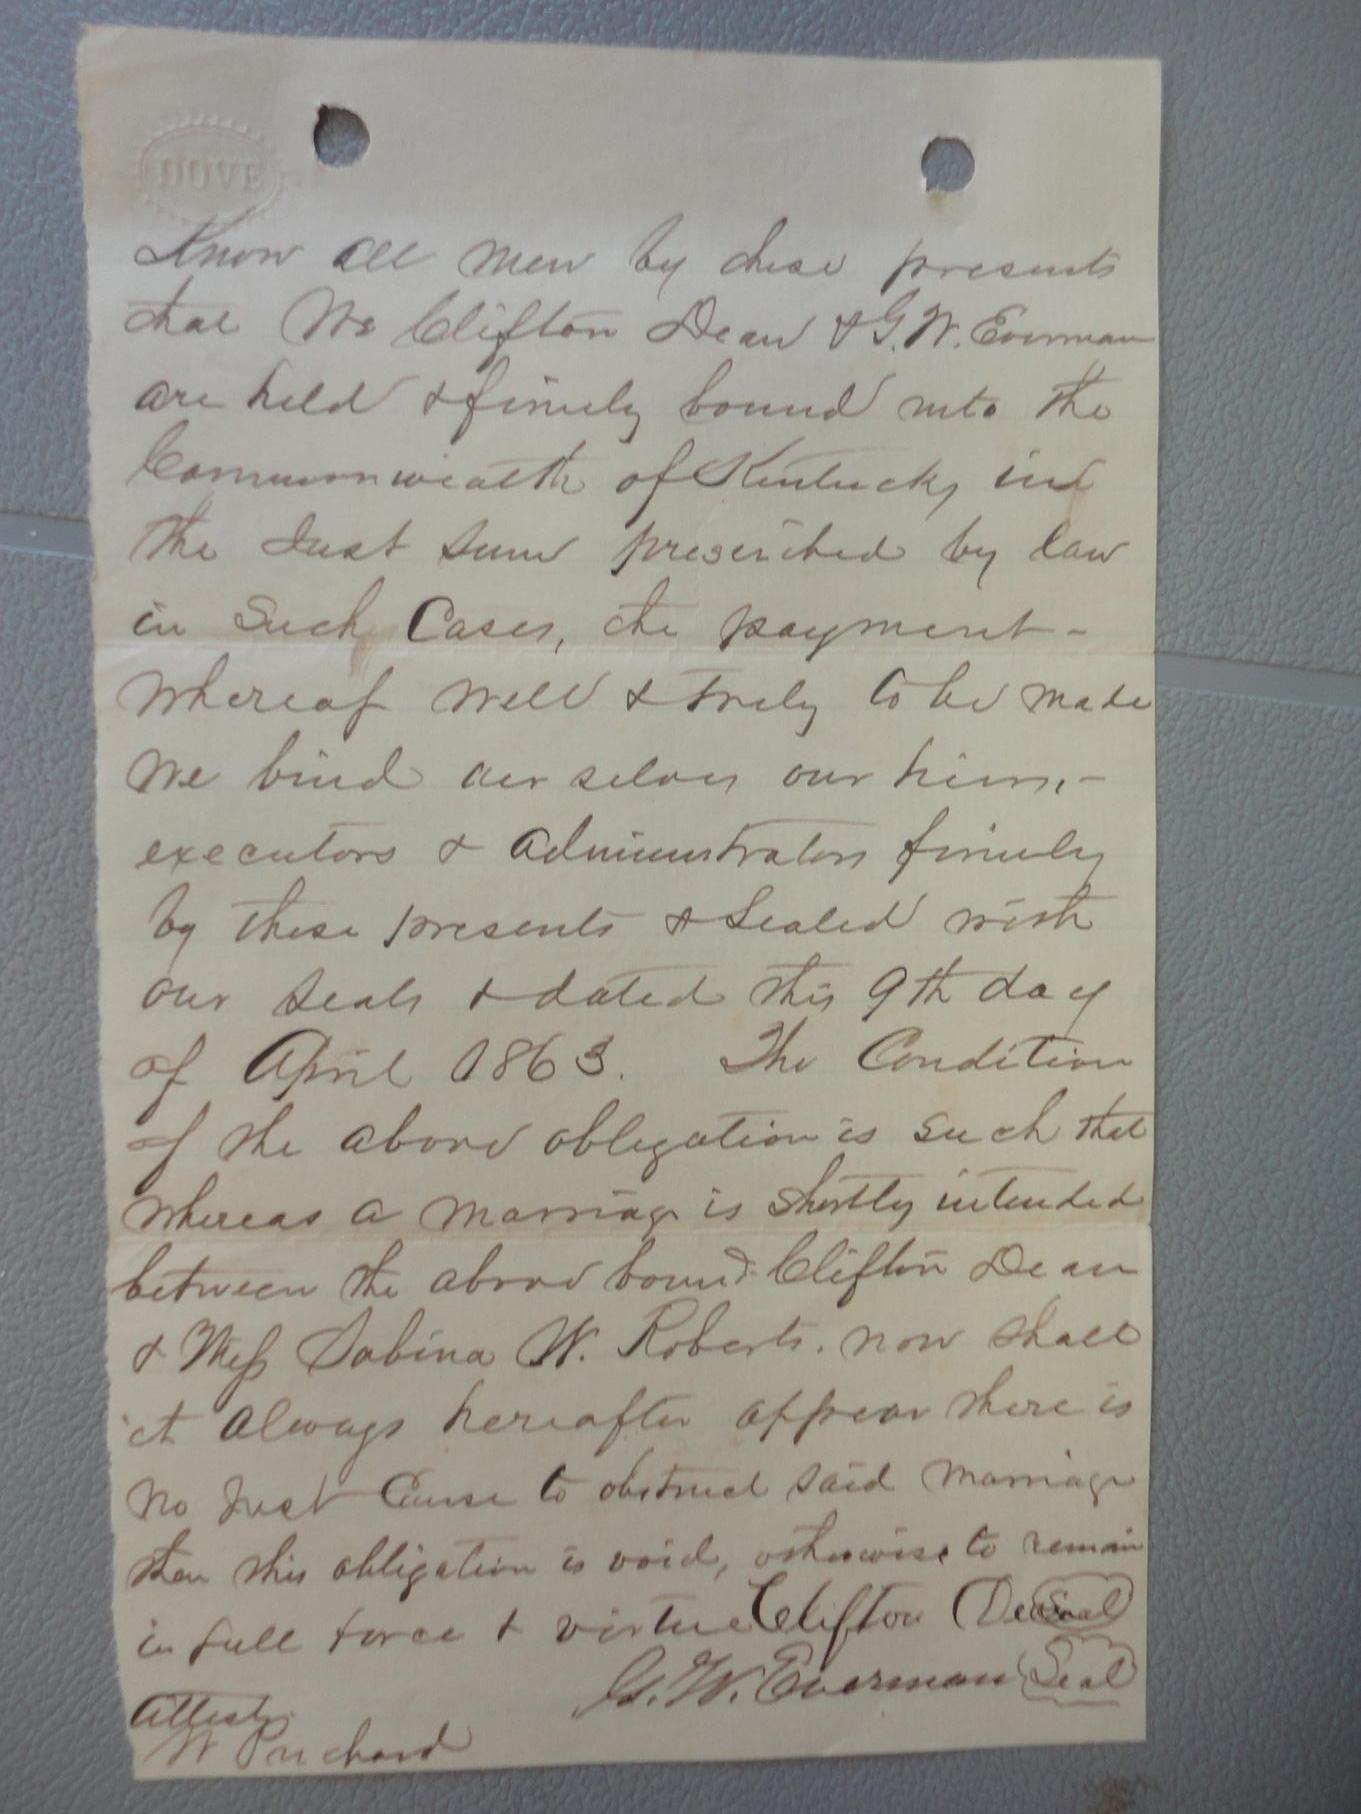 DOVE
Know all men by these presents
that We Clifton Dean & G. W. Everman
are held & firmly bound unto the
Commonwealth of Kentucky in
the Just sum prescribed by law
in Such Cases, the payment -
whereof well & truly to be made
we bind our selves our heirs, -
executors & administrators firmly
by these presents & Sealed with
our seals & dated this 9th day
of April 1863. The Condition
of the above obligation is such that
whereas a marriage is shortly intended
between the above bound Clifton Dean
& Miss Sabina W. Roberts. now shall
it always hereafter appear there is
no Just Cause to obstruct said marriage
then this obligation is void, otherwise to remain
in full force & virtue Clifton Dean Seal
G. W. Everman Seal
Attest.
W Prichard